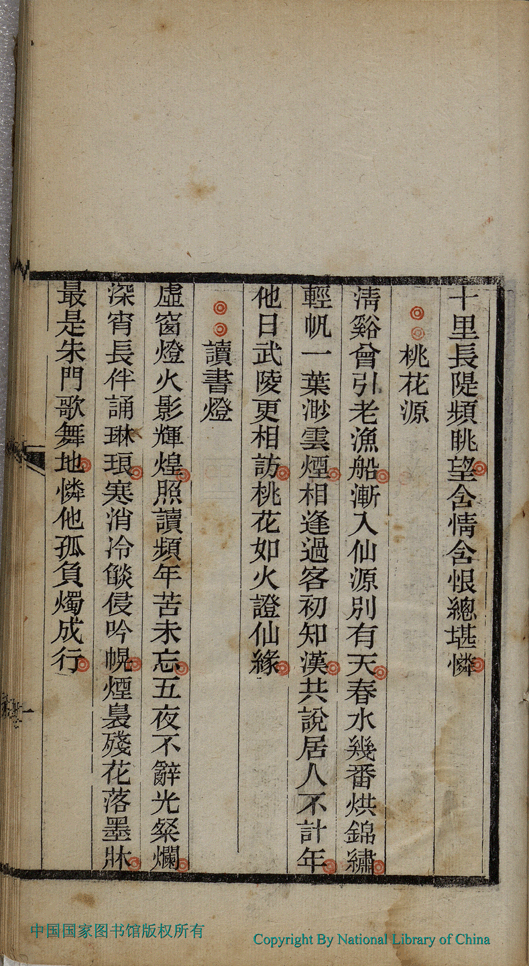 十里長隄頻眺望含情含恨總堪憐
桃花源
清谿曾引老漁船漸入仙源別有天春水幾番烘錦繡
輕帆一葉渺雲煙相逢過客初知漢共說居人不計年
他日武陵更相訪桃花如火證仙緣
讀書燈
虛窗燈火影輝煌照讀頻年苦未忘五夜不辭光粲爛
深宵長伴誦琳琅寒消冷燄侵吟幌煙裊殘花落墨牀
最是朱門歌舞地憐他孤負燭成行
中国国家图书馆版权所有
Copyright By National Library of China